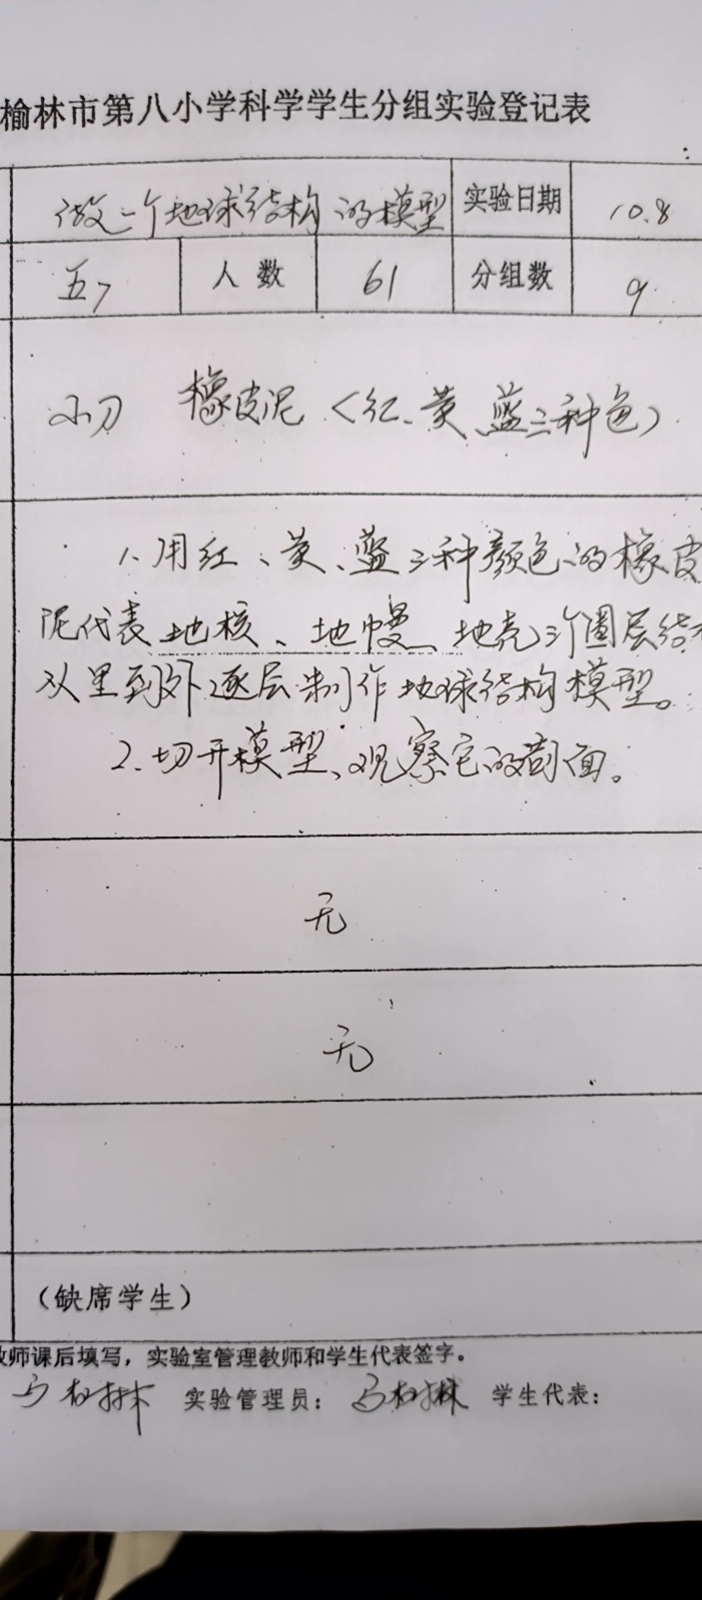 榆林市第八小学科学学生分组实验登记表
做一个地球结构的模型 实验日期 10.8
五7 人数 61 分组数 9
小刀 橡皮泥（红、黄、蓝三种色）
1.用红、黄、蓝三种颜色的橡皮
泥代表地核、地幔、地壳三个圈层结
从里到外逐层制作地球结构模型。
2.切开模型、观察它的剖面。
无
无
（缺席学生）
教师课后填写，实验室管理教师和学生代表签字。
实验管理员： 学生代表：